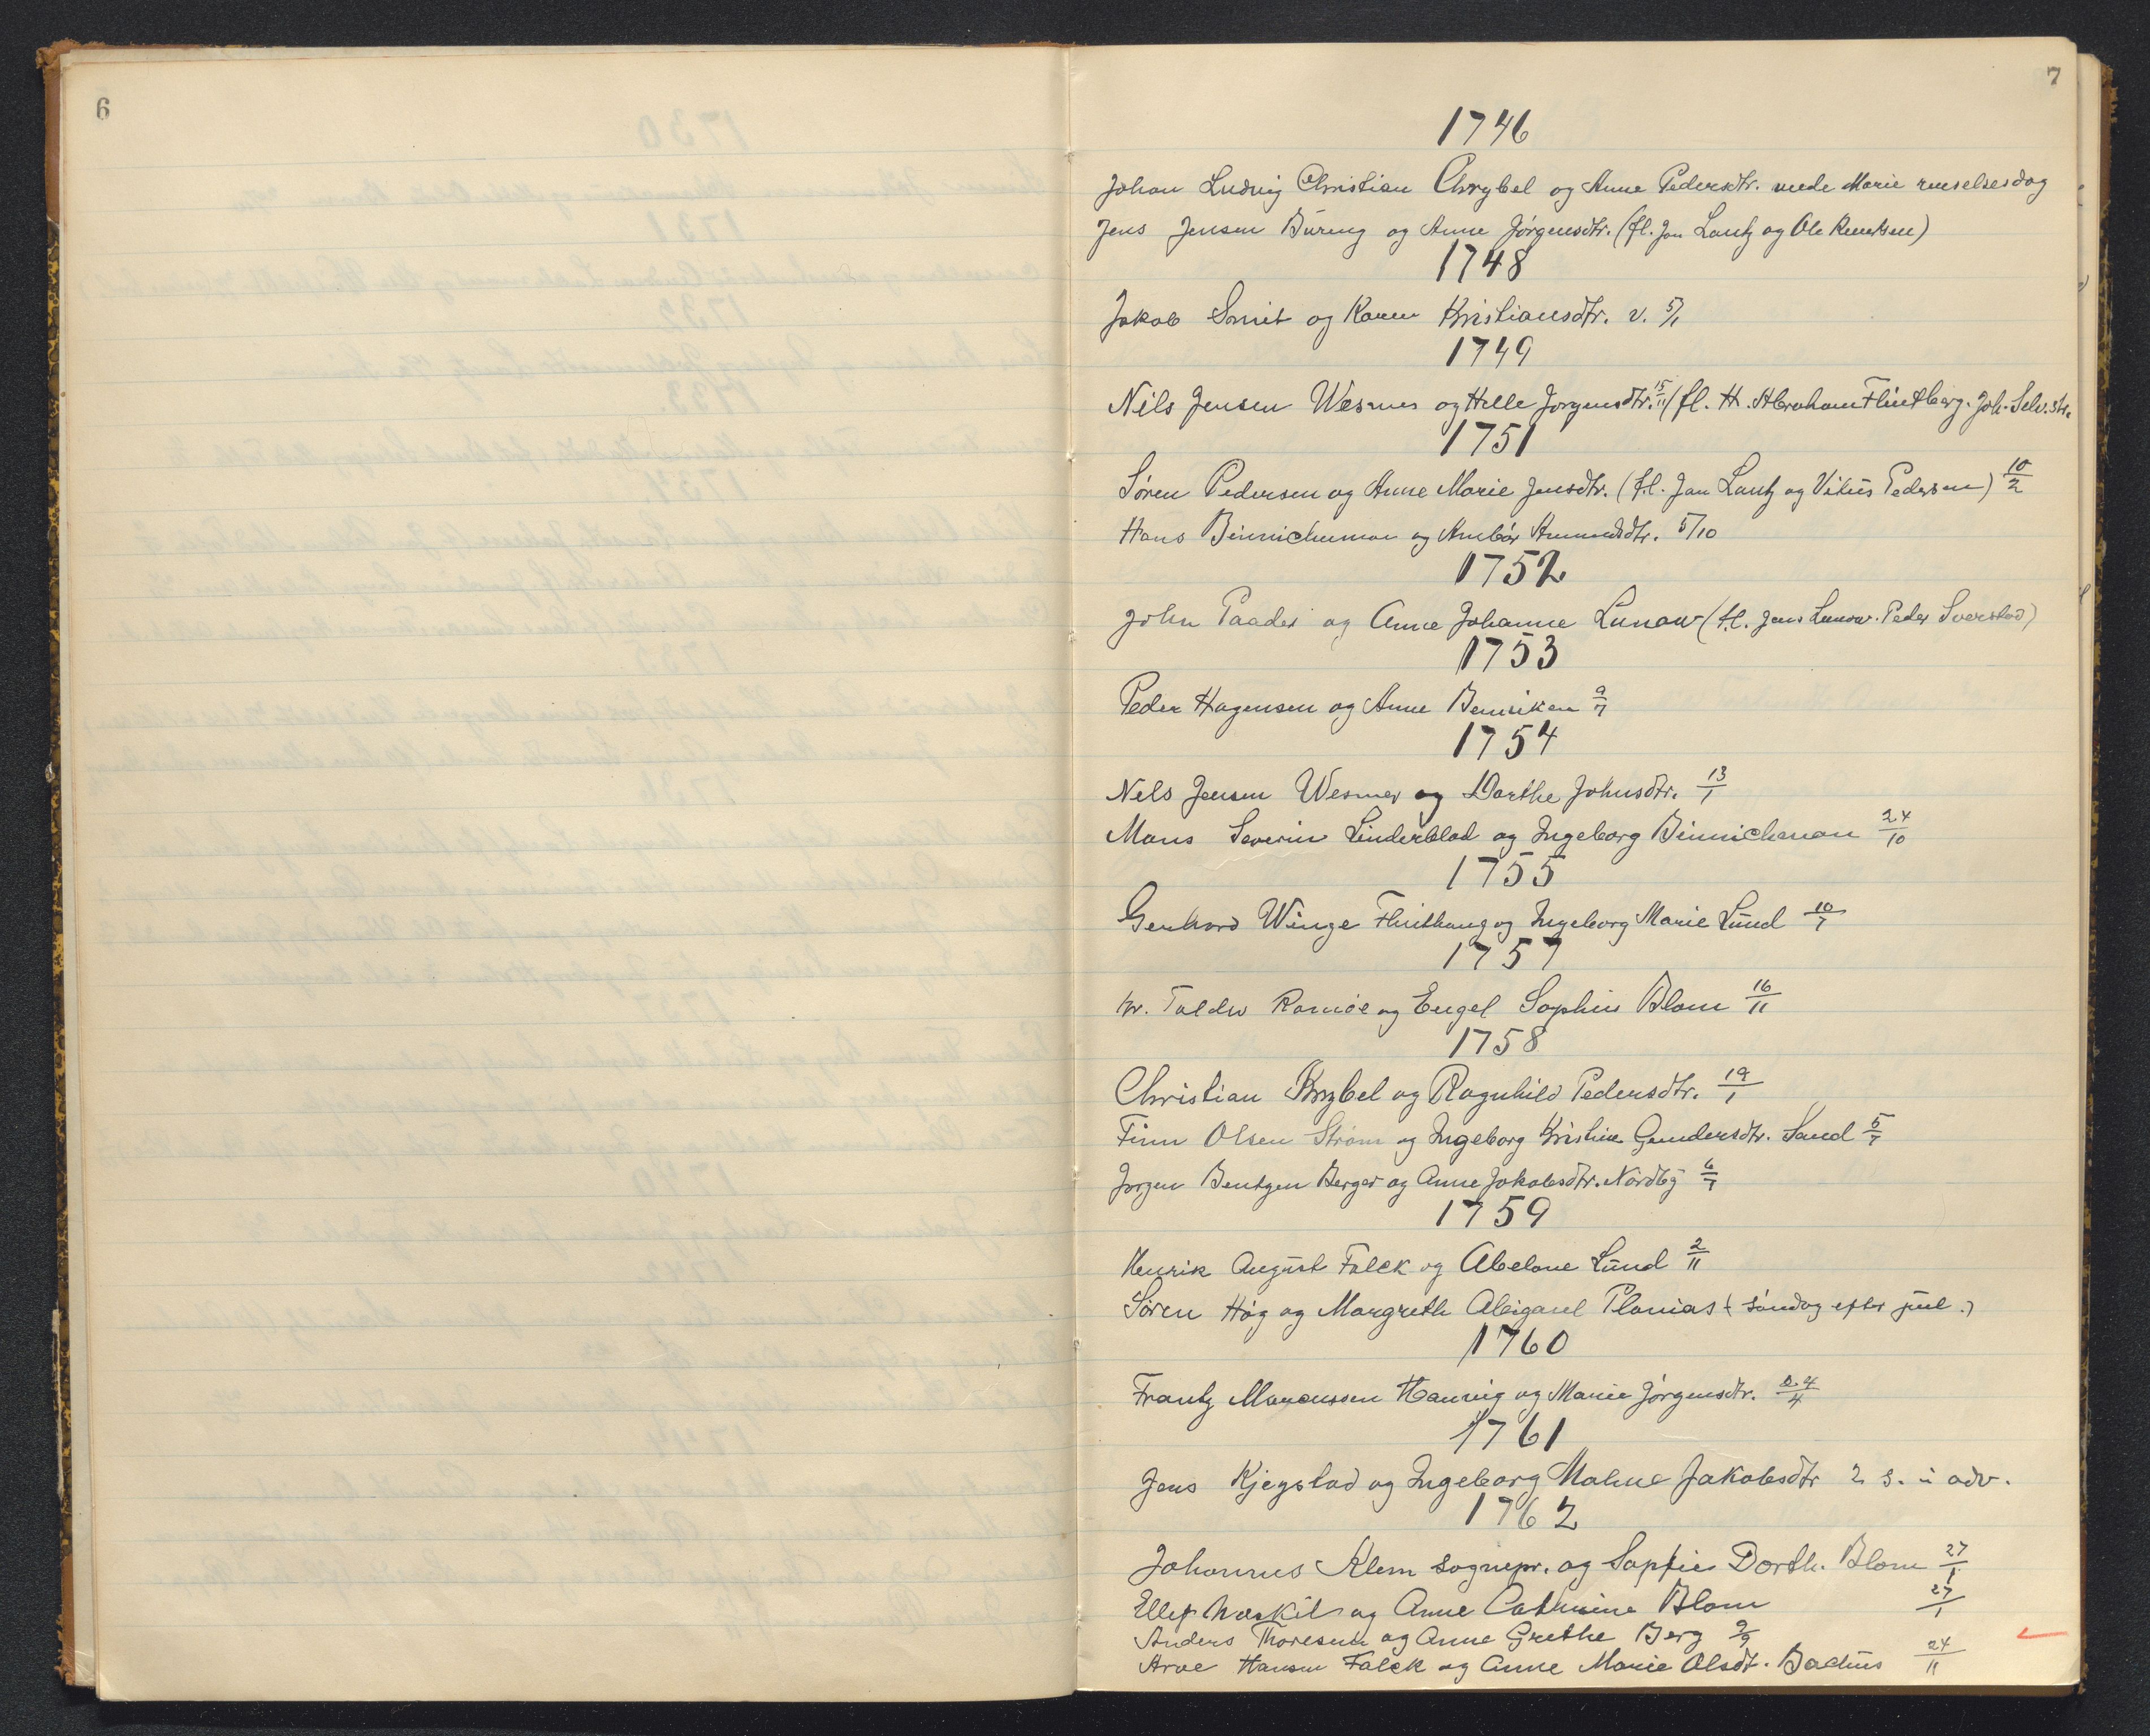 6
7
1746
Johan Ludvig Christian Chrybel og Anne Pedersdtr. Marie renselsesdag
Jens Jensen Büring og Anne Jørgensdtr. (fl. Jan Lantz og Ole
1748
Jakob Smit og Karen Kristiansdtr. v. 5/1
1749
Nils Jensen Wesmer og Helle Jorgensdtr. 15/11 (fl. H. Abraham Flintberg. Joh. Selv.str.
1751
Søren Pedersen og Anne Marie Jensdtr. (fl. Jan Lantz og Vitus Pedersen) 10/2
Hans Binnichman og Anbór Amundsdtr. 5/10
1752
John Paader og Anne Johanne Lunow (fl. Jens Lunow. Peder Sverstad)
1753
Peder Hagensen og Anne 9/7
1754
Nels Jensen Wesmer og Dorthe Johnsdtr. 13/1
Mons Severin Linderblad og Ingeborg Binnichman 24/10
1755
Gerhard Winge Flinthaug og Ingeborg Marie Lund 10/7
1757
hr. og Engel Sophie Blom 16/11
1758
Christian Krybel og Ragnhild Pedersdtr. 19/1
Finn Olsen Strøm og Ingeborg Kristine Gundersdtr. Sand 5/7
Jørgen Bentzen Berger og Anne Jakobsdtr. Nordby 6/7
1759
Henrik August Falck og Abelone Lund 2/11
Søren Høg og Margreth Abigael Planias (søndag efter jul.)
1760
Frantz Marcussen Hannig og Marie Jørgensdtr. 24/4
1761
Jens Kjegstad og Ingeborg Malene Jakobsdtr 2 s. i adv.
1762
Johannes Klem sognepr. og Sophie Dorth. Blom 27/1
Ellef Næskil og Anne Cathrine Blom 27/1
Anders Thoresen og Anne Grethe Berg 2/9
Arve Hansen Falck og Anne Marie Olsdt. Bachus 24/11